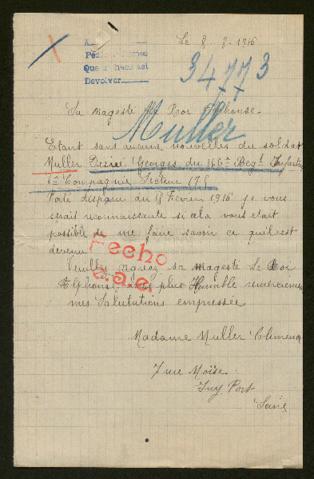 Le 8 - 8 - 1916
34773
Sa mageste Le Roi Alphonse.
Muller
Etant sans aucune nouvelles du soldat
Muller Désiré Georges du 166e Regt Infanterie
Compagnie Secteur
Porté disparu du 18 Fevrier 1916 je vous
serait reconnaissante si cela vous était
possible de me faire savoir ce qu'il est
devenu
Fecho
Veuillez agréez sa mageste Le Roi
Alphonse, plus humble
mes Salutations empressée
Madame Muller Clemence
7 rue Moïse
Ivry Port
Seine